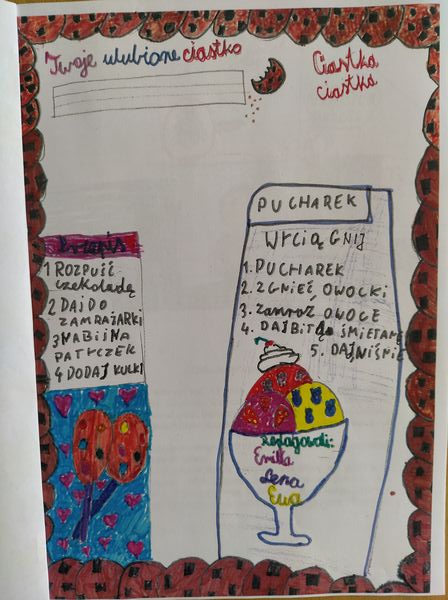 Twoje ulubione ciastko
Ciastka
ciastka
PUCHAREK
WYCIĄGNIJ
1. PUCHAREK
2. ZGNIEĆ OWOCKI
3. ZAMROŹ OWOCE
4. DAJ BITĄ ŚMIETANĘ
5. DAJ WIŚNIE
Przepis
1 ROZPUŚĆ
czekoladę
2 DAJ DO
ZAMRAŻARKI
3 NABIJ NA
PATYCZEK
4 DODAJ KULKI
Emilka
Lena
Ewa